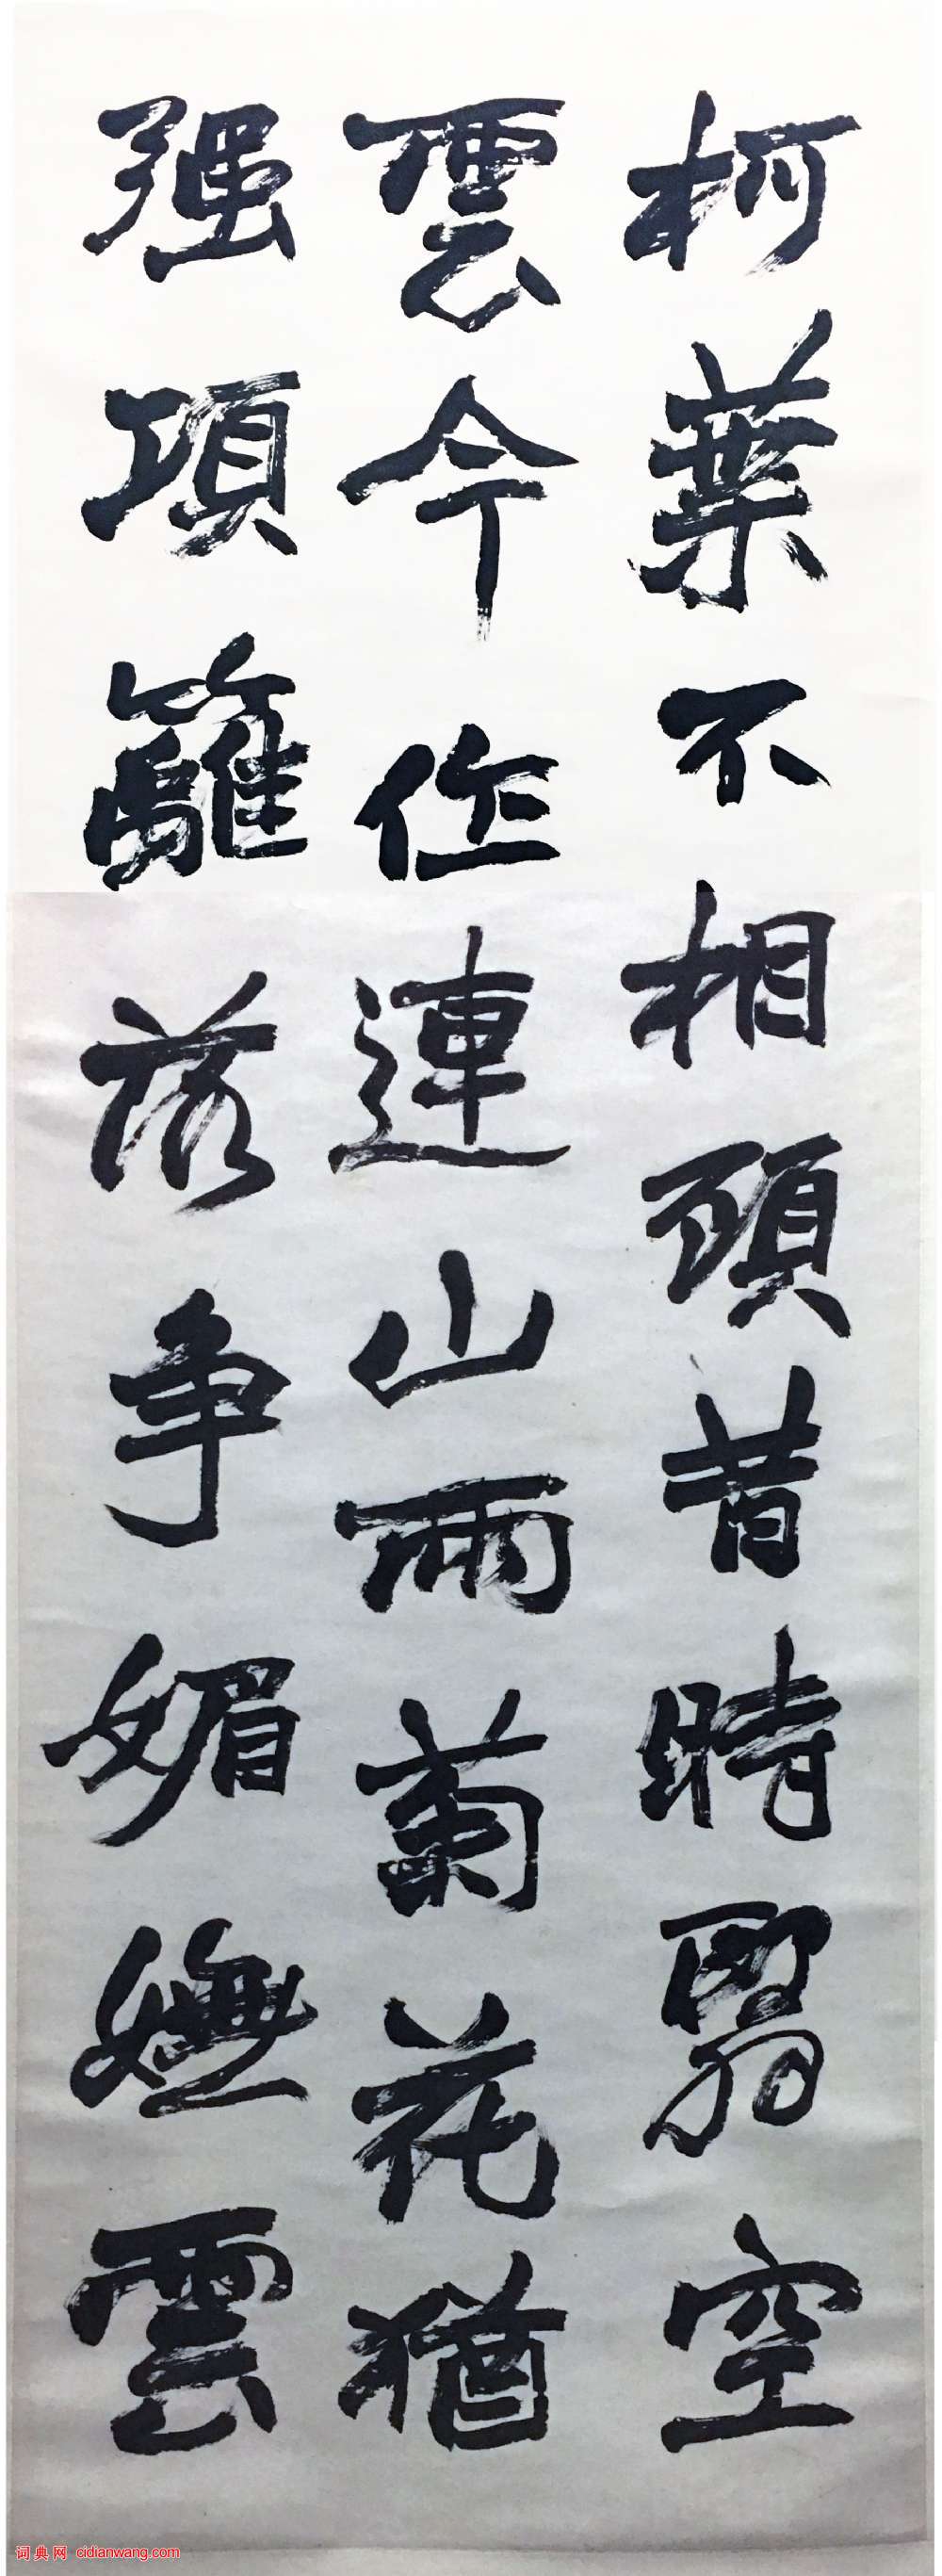 柯葉不相頭昔時翳空
雲今作連山雨菊花猶
强項籬落争媚嫵雲
词典网 cidianwang.com